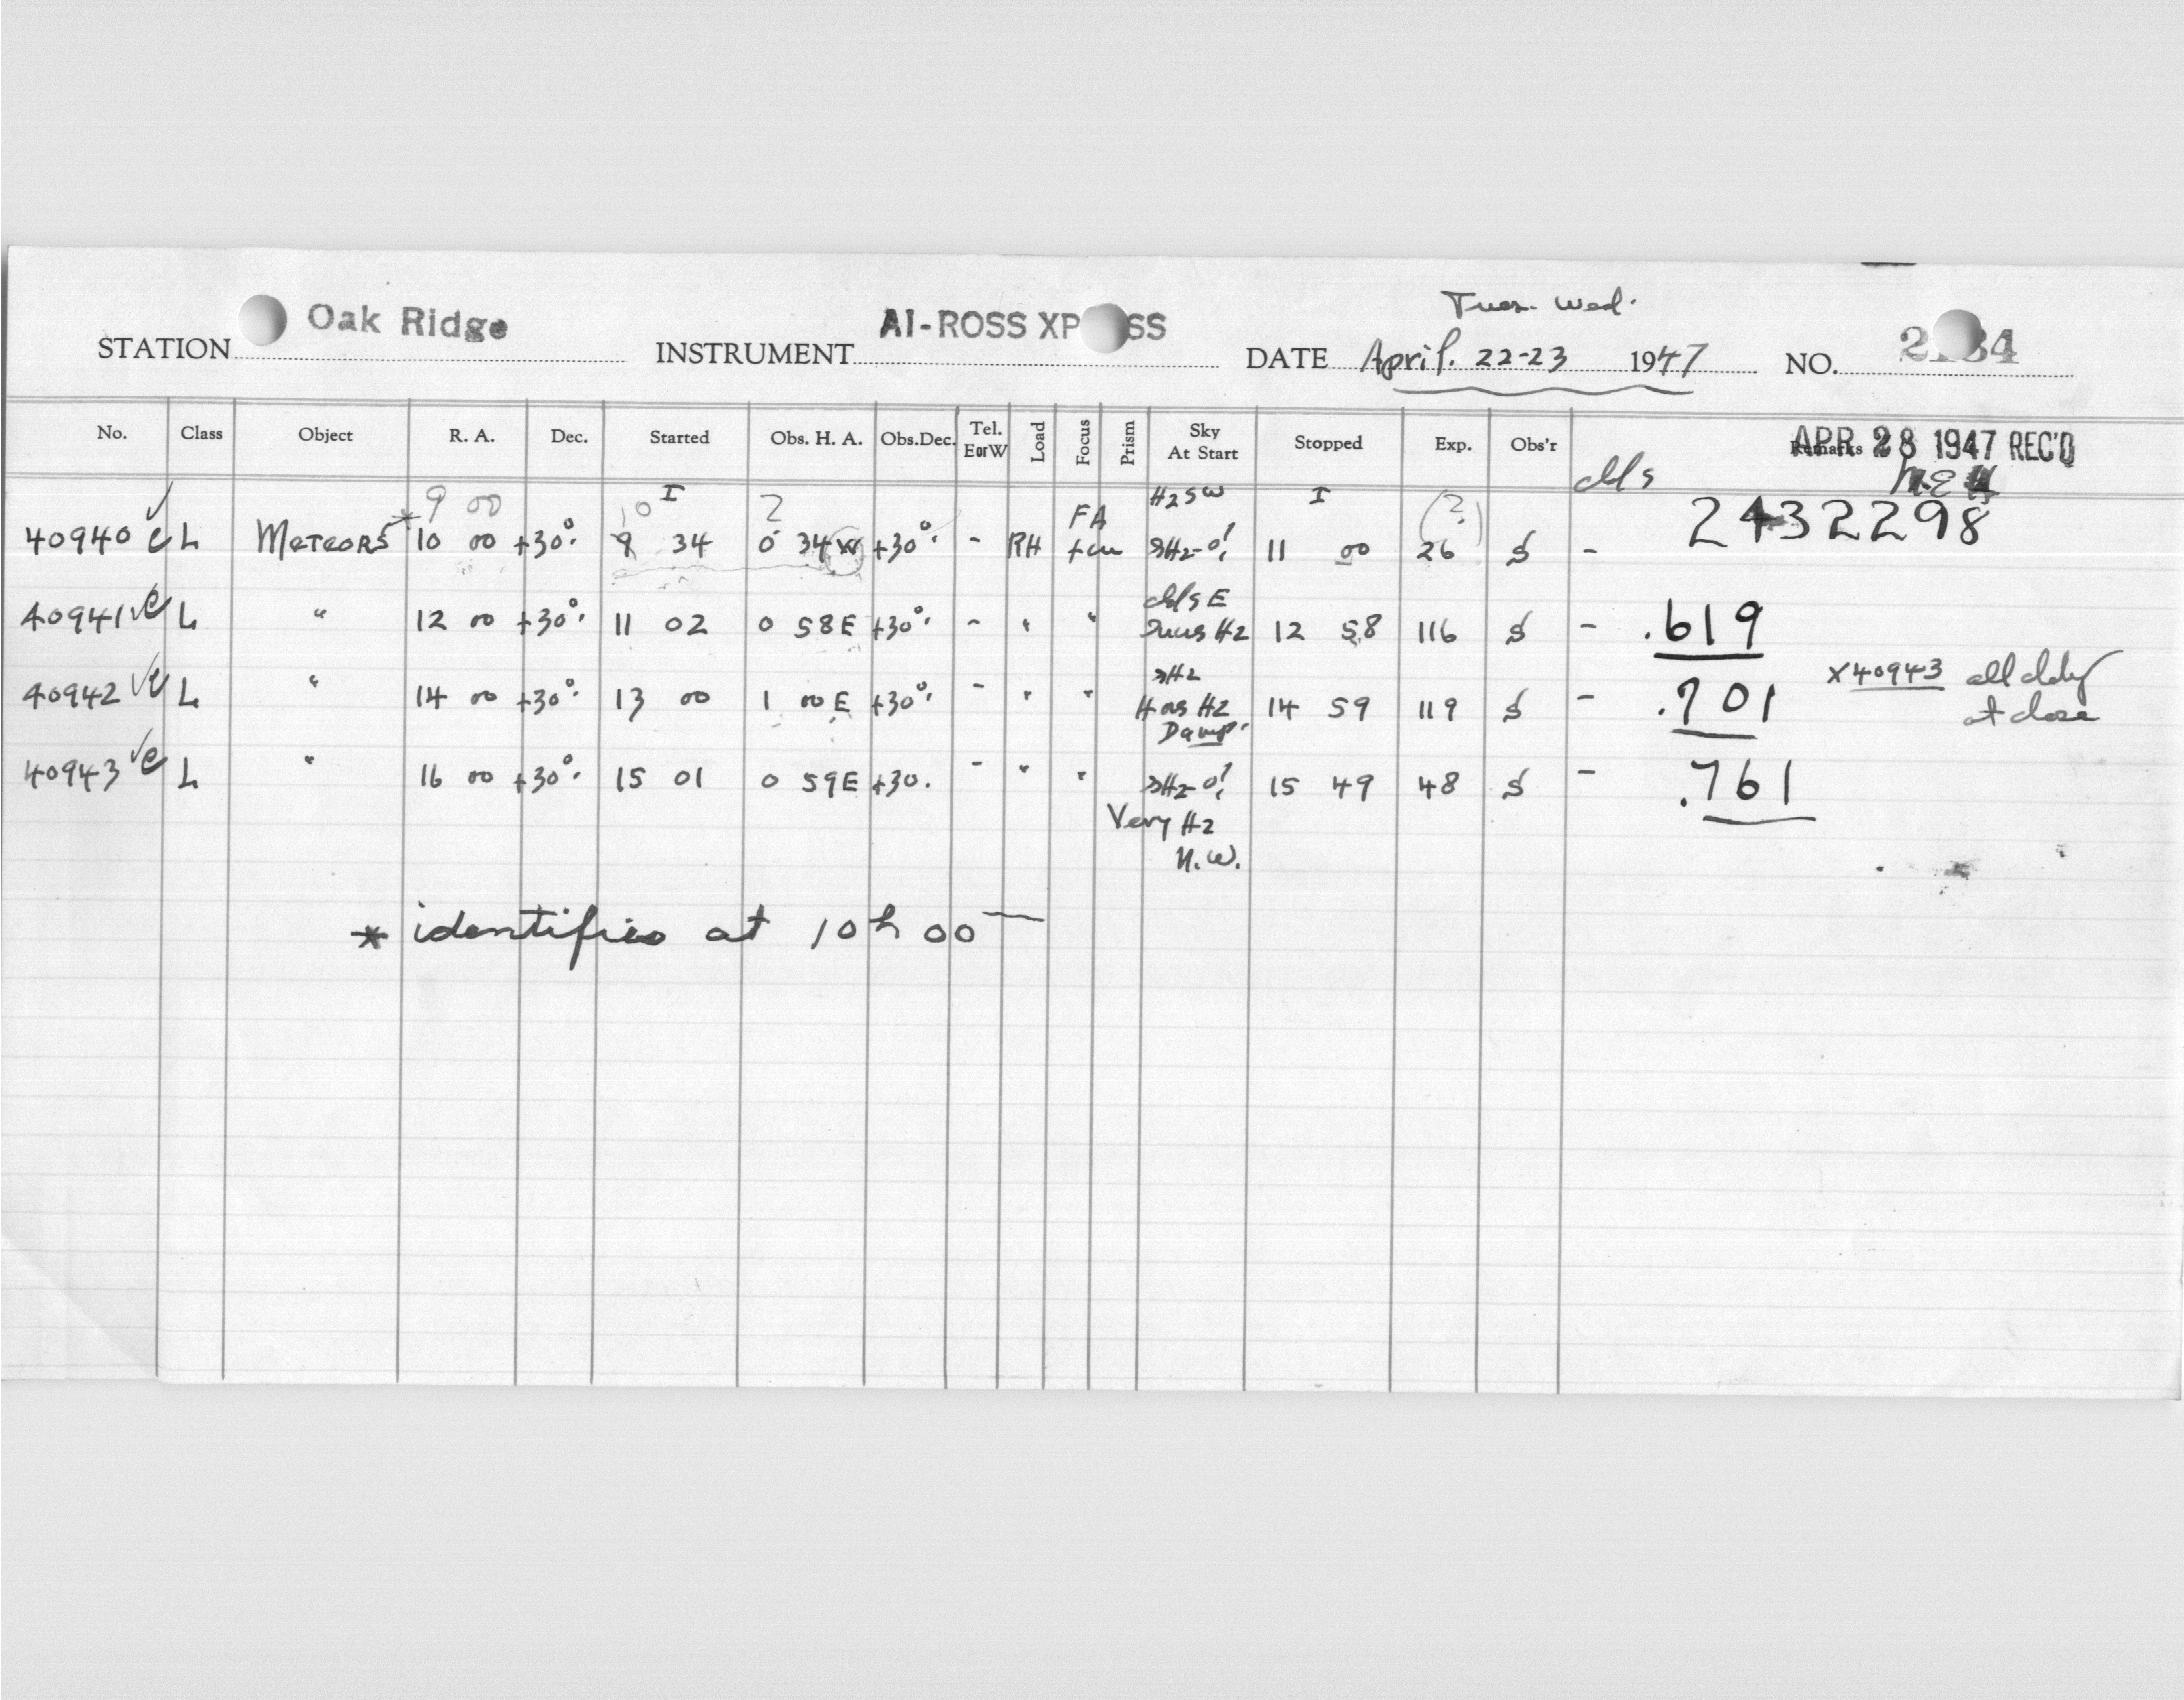 Tues. Wed.
STATION Oak Ridge INSTRUMENT AI-ROSS XP SS DATE April. 22-23 1947 NO. 2 34
No. Class Object R. A. Dec. Started Obs. H. A. Obs.Dec. Tel. EorW Load Focus Prism Sky At Start Stopped Exp. Obs'r Remarks
APR 28 1947 REC'D
clds
9 00 10 I 2 FA Hz SW I (?)
40940 c L METEORS * 10 00 +30°. 9 34 0 34 W +30°. - RH sHz-o! 11 00 26 S - 2432298
clds E
40941 c L " 12 00 +30°. 11 02 0 58 E +30°. - " " Hz 12 58 116 S - .619
sHz
40942 c L " 14 00 +30°. 13 00 1 00 E +30°. - " " Hz 14 59 119 S - .701 x40943 all cldy
Damp. at close
40943 c L " 16 00 +30°. 15 01 0 59 E +30. - " " sHz-o! 15 49 48 S - .761
Very Hz
N.W.
* identifies at 10h 00